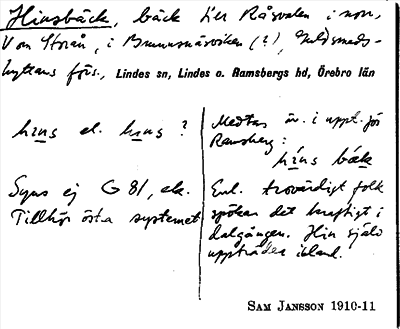 Hinsbäck, bäck t. er Råsvalen i norr,
V om Storån, i Brunnsnäsviken (?), Guldsmeds-
hyttans förs., Lindes sn, Lindes o. Ramsbergs hd, Örebro län
hins el. hıns ?
Syns ej G 81, ek.
Tillhör östra systemet
Medtas äv. i uppt. för
Ramsberg:
hi̍ns bäk
Enl. trovärdigt folk
spökar det kraftigt i
dalgången. Hin själv
uppträder ibland.
SAM JANSSON 1910-11